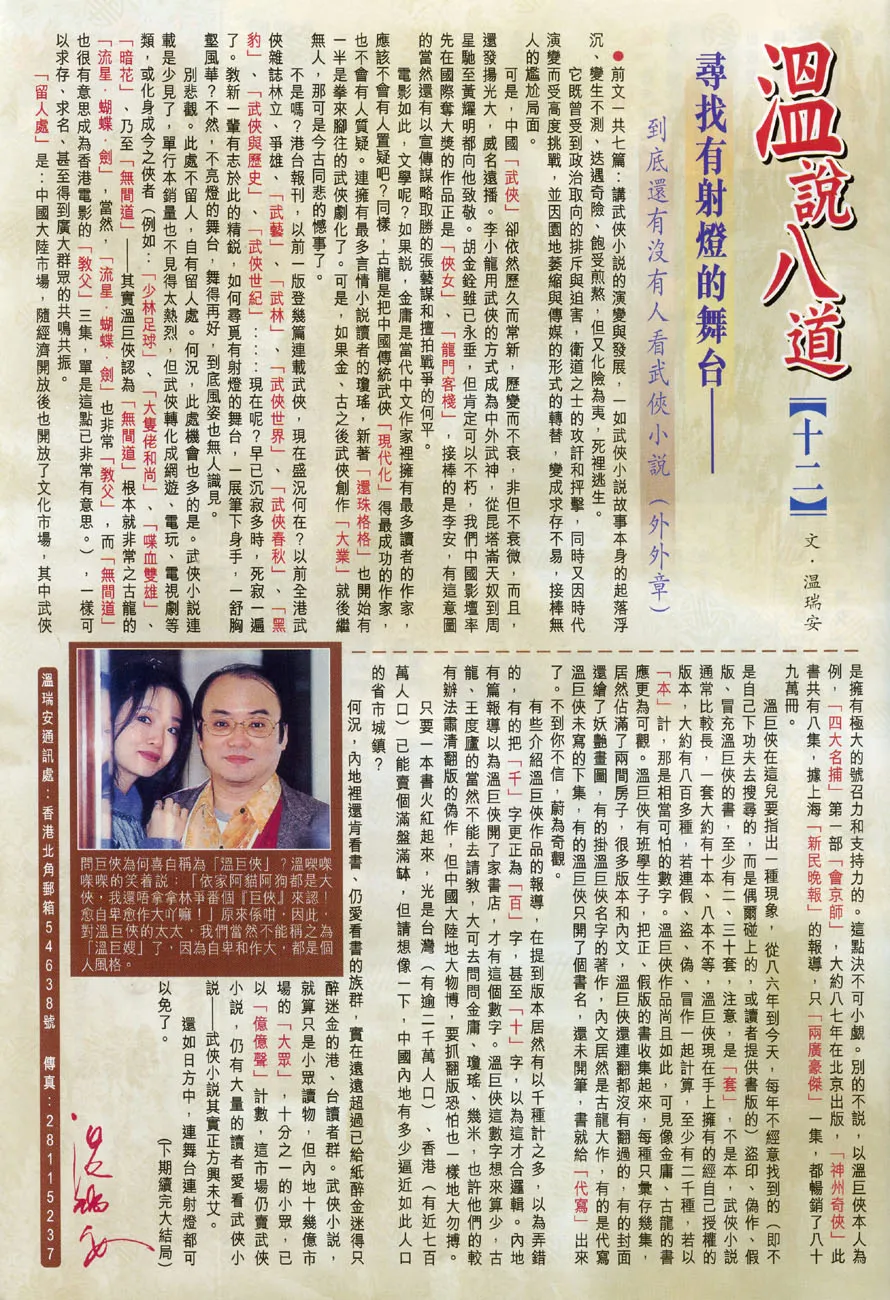 溫說八道【十二】
文·溫瑞安
尋找有射燈的舞台——
到底還有沒有人看武俠小說(外外章)
●前文一共七篇:講武俠小說的演變與發展,一如武俠小說故事本身的起落浮
沉、變生不測、迭遇奇險、飽受煎熬,但又化險為夷,死裡逃生。
它既曾受到政治取向的排斥與迫害,衛道之士的攻訐和抨擊,同時又因時代
演變而受高度挑戰,並因園地萎縮與傳媒的形式的轉替,變成求存不易,接棒無
人的尷尬局面。
可是,中國「武俠」卻依然歷久而常新,歷變而不衰,非但不衰微,而且,
還發揚光大,威名遠播。李小龍用武俠的方式成為中外武神,從昆塔崙天奴到周
星馳至黃耀明都向他致敬。胡金銓雖已永垂,但肯定可以不朽,我們中國影壇率
先在國際奪大獎的作品正是「俠女」、「龍門客棧」,接棒的是李安,有這意圖
的當然還有以宣傳謀略取勝的張藝謀和擅拍戰爭的何平。
電影如此,文學呢?如果說,金庸是當代中文作家裡擁有最多讀者的作家,
應該不會有人置疑吧?同樣,古龍是把中國傳統武俠「現代化」得最成功的作家,
也不會有人質疑。連擁有最多言情小說讀者的瓊瑤,新著「還珠格格」也開始有
一半是拳來腳往的武俠劇化了。可是,如果金、古之後武俠創作「大業」就後繼
無人,那可是今古同悲的憾事了。
不是嗎?港台報刊,以前一版登幾篇連載武俠,現在盛況何在?以前全港武
俠雜誌林立、爭雄、「武藝」、「武林」、「武俠世界」、「武俠春秋」、「黑
豹」、「武俠與歷史」、「武俠世紀」……現在呢?早已沉寂多時,死寂一遍
了。教新一輩有志於此的精銳,如何尋覓有射燈的舞台,一展筆下身手,一舒胸
壑風華?不然,不亮燈的舞台,舞得再好,到底風姿也無人識見。
別悲觀。此處不留人,自有留人處。何況,此處機會也多的是。武俠小說連
載是少見了,單行本銷量也不見得太熱烈,但武俠轉化成網遊、電玩、電視劇等
類,或化身成今之俠者(例如:「少林足球」、「大隻佬和尚」、「喋血雙雄」、
「暗花」、乃至「無間道」——其實溫巨俠認為「無間道」根本就非常之古龍的
「流星.蝴蝶.劍」,當然,「流星.蝴蝶.劍」也非常「教父」,而「無間道」
也很有意思成為香港電影的「教父」三集,單是這點已非常有意思。),一樣可
以求存、求名、甚至得到廣大群眾的共鳴共振。
「留人處」是:中國大陸市場,隨經濟開放後也開放了文化市場,其中武俠
是擁有極大的號召力和支持力的。這點決不可小覷。別的不說,以溫巨俠本人為
例,「四大名捕」第一部「會京師」,大約八七年在北京出版,「神州奇俠」此
書共有八集,據上海「新民晚報」的報導,只「兩廣豪傑」一集,都暢銷了八十
九萬冊。
溫巨俠在這兒要指出一種現象,從八六年到今天,每年不經意找到的(即不
是自己下功夫去搜尋的,而是偶爾碰上的,或讀者提供書版的)盜印、偽作、假
版、冒充溫巨俠的書,至少有二、三十套,注意,是「套」,不是本,武俠小說
通常比較長,一套大約有十本、八本不等,溫巨俠現在手上擁有的經自己授權的
版本,大約有八百多種,若連假、盜、偽、冒作一起計算,至少有二千種,若以
「本」計,那是相當可怕的數字。溫巨俠作品尚且如此,可見像金庸、古龍的書
應更為可觀。溫巨俠有班學生子,把正、假版的書收集起來,每種只彙存幾集,
居然佔滿了兩間房子,很多版本和內文,溫巨俠還連翻都沒有翻過的,有的封面
還繪了妖艷畫圖,有的掛溫巨俠名字的著作,內文居然是古龍大作,有的是代寫
溫巨俠未寫的下集,有的溫巨俠只開了個書名,還未開筆,書就給「代寫」出來
了。不到你不信,蔚為奇觀。
有些介紹溫巨俠作品的報導,在提到版本居然有以千種計之多,以為弄錯
的,有的把「千」字更正為「百」字,甚至「十」字,以為這才合邏輯。內地
有篇報導以為溫巨俠開了家書店,才有這個數字。溫巨俠這數字想來算少,古
龍、王度廬的當然不能去請教,大可去問問金庸、瓊瑤、幾米,也許他們的較
有辦法肅清翻版的偽作,但中國大陸地大物博,要抓翻版恐怕也一樣地大勿搏。
只要一本書火紅起來,光是台灣(有逾二千萬人口)、香港(有近七百
萬人口)已能賣個滿盤滿缽,但請想像一下,中國內地有多少逼近如此人口
的省市城鎮?
何況,內地裡還肯看書、仍愛看書的族群,實在遠遠超過已給紙醉金迷得只
醉迷金的港、台讀者群。武俠小說,
就算只是小眾讀物,但內地十幾億市
場的「大眾」,十分之一的小眾,已
以「億億聲」計數,這市場仍賣武俠
小說,仍有大量的讀者愛看武俠小
說——武俠小說其實正方興未艾。
還如日方中,連舞台連射燈都可
以免了。
(下期續完大結局)
問巨俠為何喜自稱為「溫巨俠」?溫㗎㗎
㗎㗎的笑着說:「依家阿貓阿狗都是大
俠,我還唔拿拿林爭番個『巨俠』來認!
愈自卑愈作大吖嘛!」原來係咁,因此,
對溫巨俠的太太,我們當然不能稱之為
「溫巨嫂」了,因為自卑和作大,都是個
人風格。
溫瑞安通訊處:香港北角郵箱54638號 傳真:28115237
溫瑞安